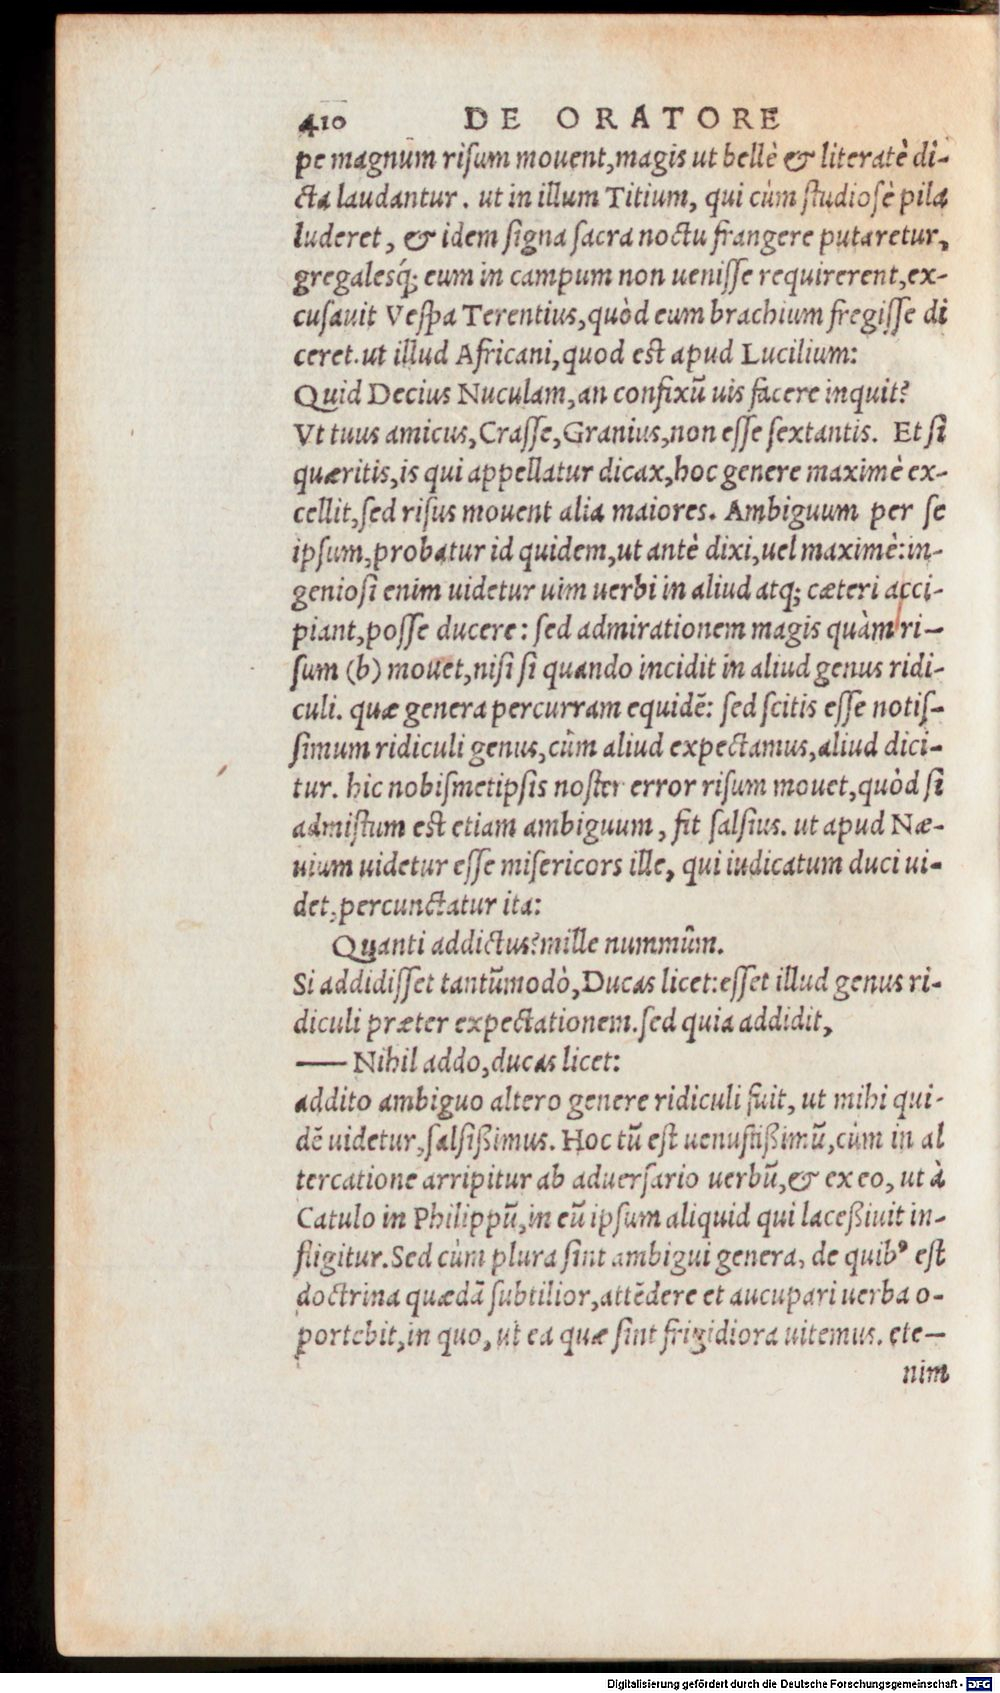 410 DE ORATORE
pe magnum risum mouent, magis ut bellè & literatè di-
cta laudantur. ut in illum Titium, qui cùm studiosè pila
luderet, & idem signa sacra noctu frangere putaretur,
gregalesq́; eum in campum non uenisse requirerent, ex-
cusauit Vespa Terentius, quòd eum brachium fregisse di
ceret. ut illud Africani, quod est apud Lucilium:
Quid Decius Nuculam, an confixũ uis facere inquit?
Vt tuus amicus, Crasse, Granius, non esse sextantis. Et si
quæritis, is qui appellatur dicax, hoc genere maximè ex-
cellit, sed risus mouent alia maiores. Ambiguum per se
ipsum, probatur id quidem, ut antè dixi, uel maximè: in-
geniosi enim uidetur uim uerbi in aliud atq; cæteri acci-
piant, posse ducere: sed admirationem magis quàm ri-
sum (b) mouet, nisi si quando incidit in aliud genus ridi-
culi. quæ genera percurram equidẽ: sed scitis esse notis-
simum ridiculi genus, cùm aliud expectamus, aliud dici-
tur. hic nobismetipsis noster error risum mouet, quòd si
admistum est etiam ambiguum, fit salsius. ut apud Næ-
uium uidetur esse misericors ille, qui iudicatum duci ui-
det, percunctatur ita:
Quanti addictus? mille nummûm.
Si addidisset tantũmodò, Ducas licet: esset illud genus ri-
diculi præter expectationem. sed quia addidit,
—— Nihil addo, ducas licet:
addito ambiguo altero genere ridiculi fuit, ut mihi qui-
dẽ uidetur, salsißimus. Hoc tũ est uenustißimũ, cùm in al
tercatione arripitur ab aduersario uerbũ, & ex eo, ut à
Catulo in Philippũ, in eũ ipsum aliquid qui laceßiuit in-
fligitur. Sed cùm plura sint ambigui genera, de quibꝰ est
doctrina quædã subtilior, attẽdere et aucupari uerba o-
portebit, in quo, ut ea quæ sint frigidiora uitemus. ete-
nim
Digitalisierung gefördert durch die Deutsche Forschungsgemeinschaft - DFG